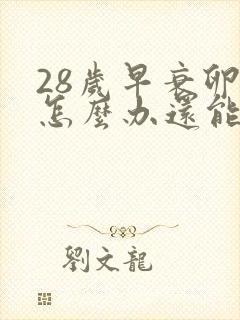 28歲早衰卵
怎麼办還能
劉文龍